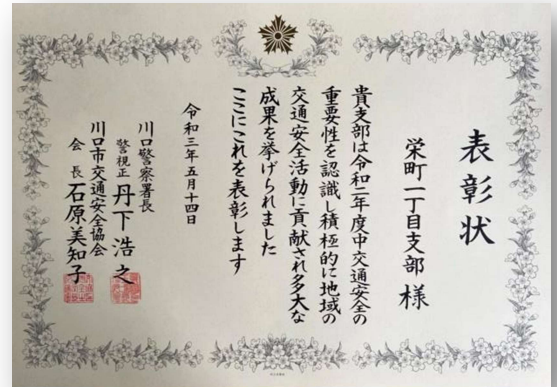 表彰状
栄町一丁目支部 様
貴支部は令和二年度中交通安全の
重要性を認識し積極的に地域の
交通安全活動に貢献され多大な
成果を挙げられました
ここにこれを表彰します
令和三年五月十四日
川口警察署長
警視正 丹下浩之
川口市交通安全協会
会長 石原美知子